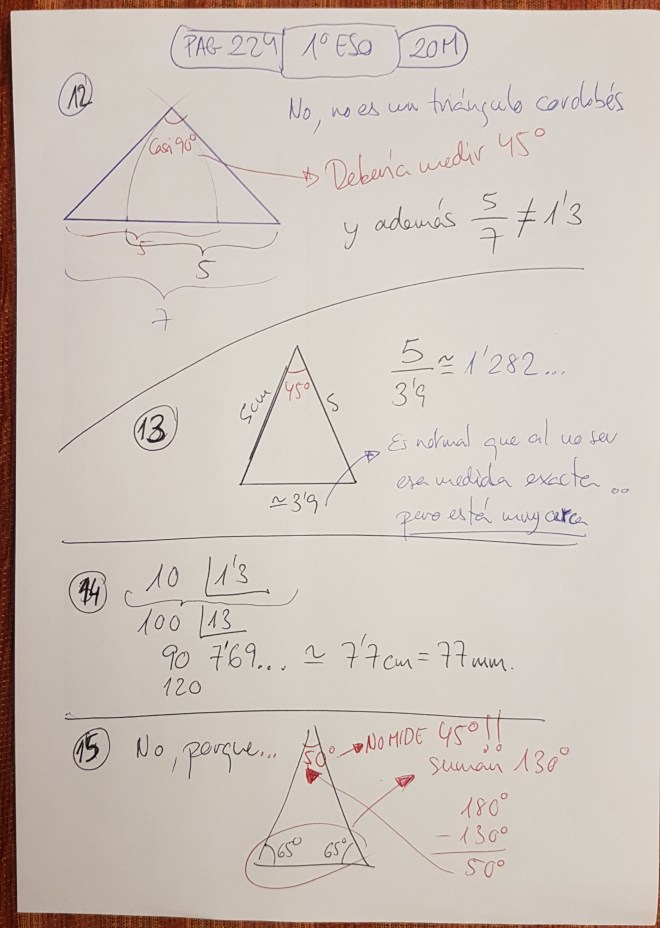 PAG 229 1º ESO 20M
12
No, no es un triángulo cordobés
Casi 90º
Debería medir 45º
y además 5/7 ≠ 1'3
5
5
7
13
5cm
45º
5
≃3'9
5/3'9 ≃ 1'282...
Es normal que al no ser
esa medida exacta...
pero está muy cerca
14
10 | 1'3
100 | 13
90 7'69... ≃ 7'7cm = 77mm.
120
15
No, porque...
50º
NO MIDE 45º!!
Suman 130º
65º 65º
180º
- 130º
50º